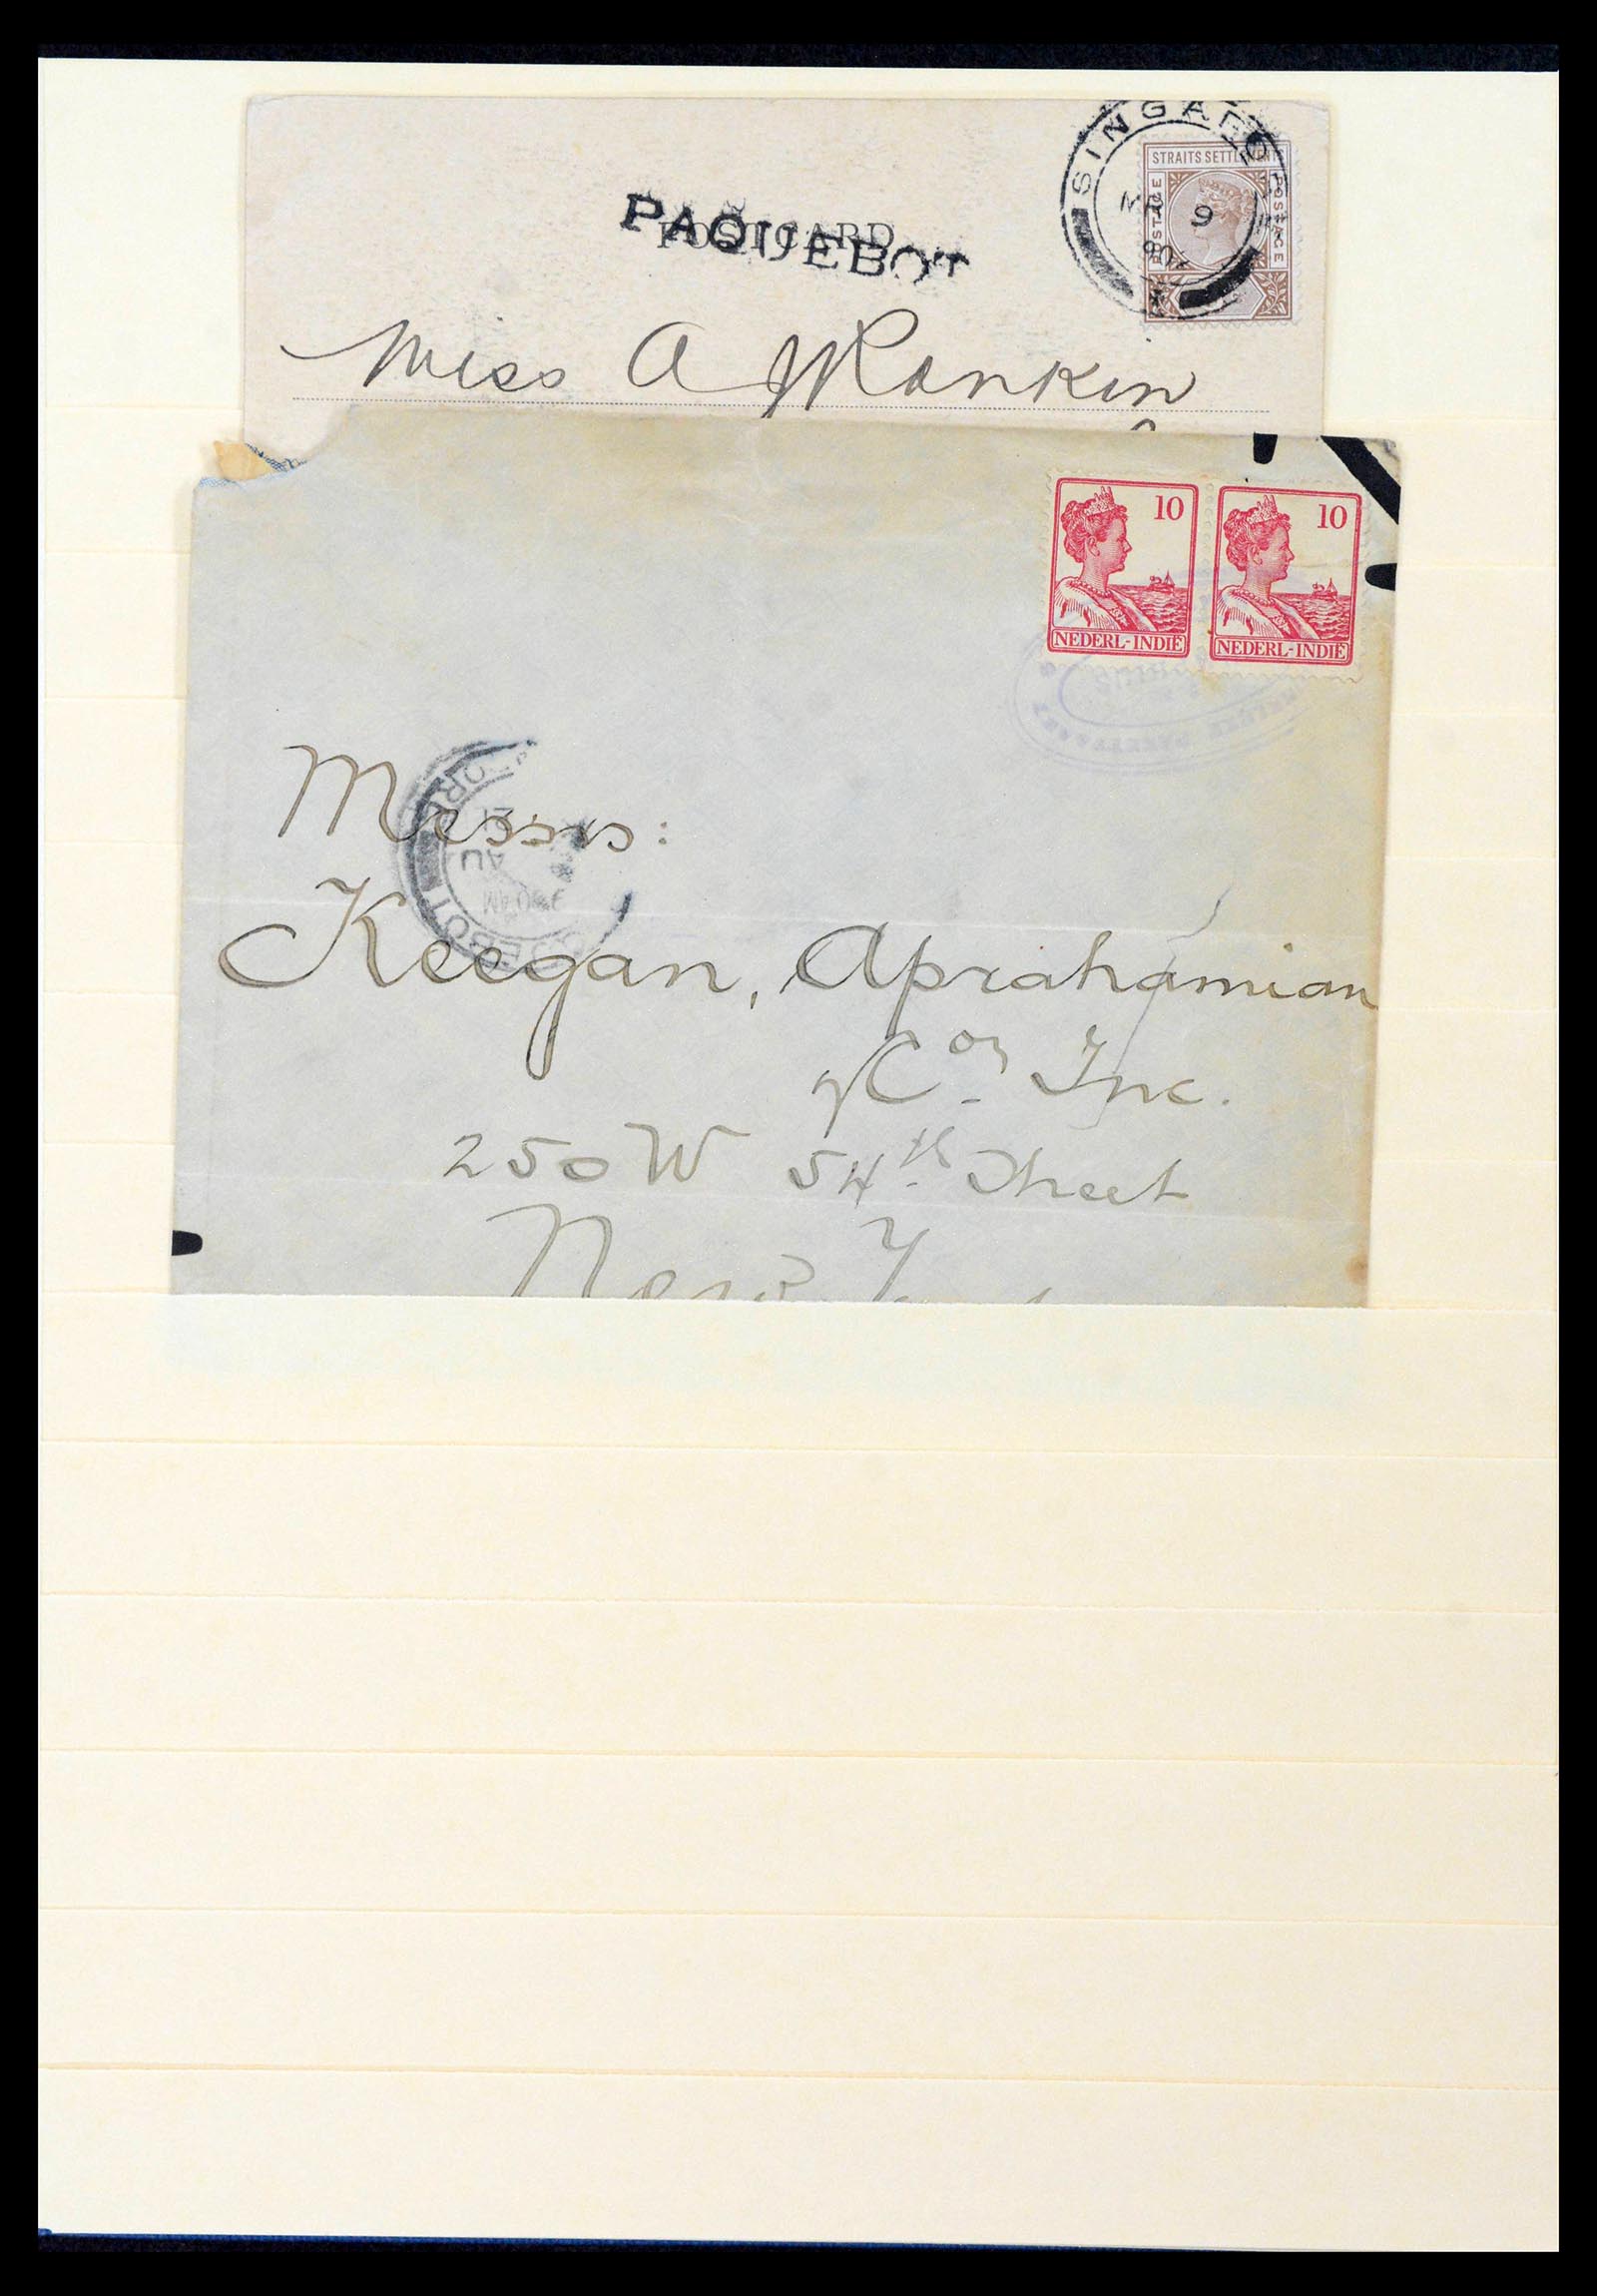 SINGAPORE
STRAITS SETTLEMENTS
POSTAGE POSTAGE
MR 9
90
PAQUEBOT
POST CARD
Miss A Rankin
10 10
NEDERL-INDIË NEDERL-INDIË
Messrs:
AU
Keegan, Aprahamian
& Co Inc.
250 W 54th Street
New